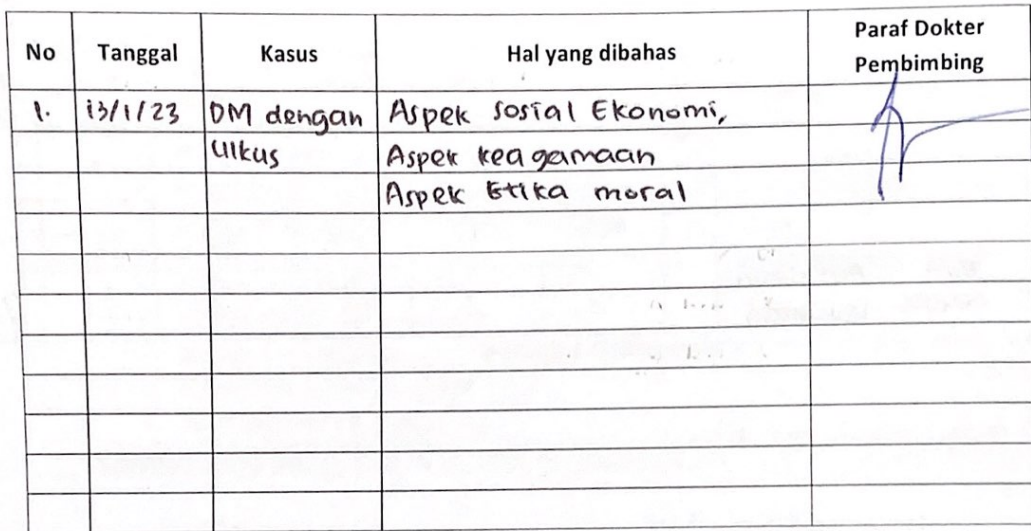 No Tanggal Kasus Hal yang dibahas Paraf Dokter
Pembimbing
1. 13/1/23 DM dengan Aspek Sosial Ekonomi,
Ulkus Aspek keagamaan
Aspek Etika moral